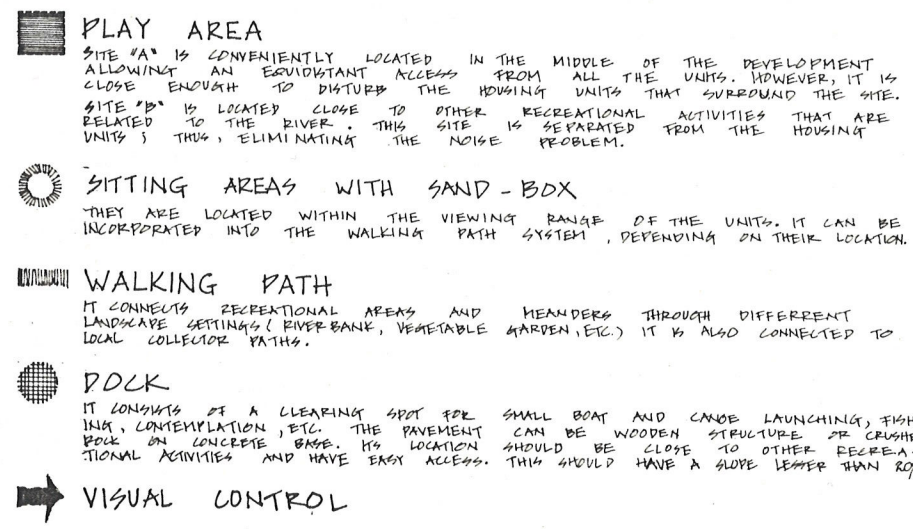 PLAY AREA
SITE "A" IS CONVENIENTLY LOCATED IN THE MIDDLE OF THE DEVELOPMENT
ALLOWING AN EQUIDISTANT ACCESS FROM ALL THE UNITS. HOWEVER, IT IS
CLOSE ENOUGH TO DISTURB THE HOUSING UNITS THAT SURROUND THE SITE.
SITE "B" IS LOCATED CLOSE TO OTHER RECREATIONAL ACTIVITIES THAT ARE
RELATED TO THE RIVER. THIS SITE IS SEPARATED FROM THE HOUSING
UNITS; THUS, ELIMINATING THE NOISE PROBLEM.
SITTING AREAS WITH SAND-BOX
THEY ARE LOCATED WITHIN THE VIEWING RANGE OF THE UNITS. IT CAN BE
INCORPORATED INTO THE WALKING PATH SYSTEM, DEPENDING ON THEIR LOCATION.
WALKING PATH
IT CONNECTS RECREATIONAL AREAS AND MEANDERS THROUGH DIFFERRENT
LANDSCAPE SETTINGS (RIVER BANK, VEGETABLE GARDEN, ETC.) IT IS ALSO CONNECTED TO
LOCAL COLLECTOR PATHS.
DOCK
IT CONSISTS OF A CLEARING SPOT FOR SMALL BOAT AND CANOE LAUNCHING, FISH
ING, CONTEMPLATION, ETC. THE PAVEMENT CAN BE WOODEN STRUCTURE OR CRUSHE
ROCK ON CONCRETE BASE. ITS LOCATION SHOULD BE CLOSE TO OTHER RECREA-
TIONAL ACTIVITIES AND HAVE EASY ACCESS. THIS SHOULD HAVE A SLOPE LESSER THAN 20%
VISUAL CONTROL